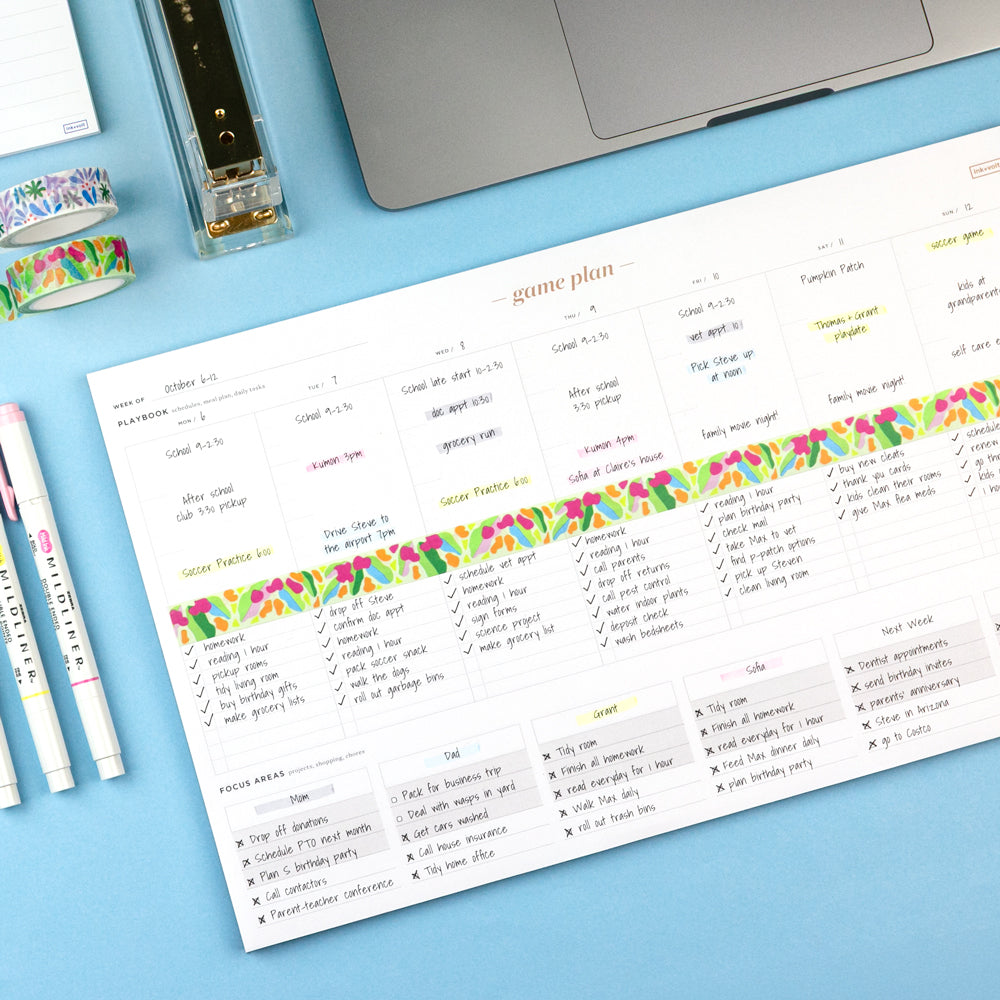 ink+volt
ink+volt
— game plan —
WEEK OF October 6-12
PLAYBOOK schedules, meal plan, daily tasks
MON / 6
School 9-2:30
After school
club 3:30 pickup
Soccer Practice 6:00
TUE / 7
School 9-2:30
Kumon 3pm
Drive Steve to
the airport 7pm
WED / 8
School late start 10-2:30
doc appt 10:30
grocery run
Soccer Practice 6:00
THU / 9
School 9-2:30
After school
3:30 pickup
Kumon 4pm
Sofia at Claire's house
FRI / 10
School 9-2:30
vet appt. 10
Pick Steve up
at noon
family movie night!
SAT / 11
Pumpkin Patch
Thomas + Grant
playdate
family movie night!
SUN / 12
soccer game
kids at
grandparents
self care
✓ homework
✓ reading 1 hour
✓ pickup rooms
✓ tidy living room
✓ buy birthday gifts
✓ make grocery lists
✓ drop off Steve
✓ confirm doc appt
✓ homework
✓ reading 1 hour
✓ pack soccer snack
✓ walk the dogs
✓ roll out garbage bins
✓ schedule vet appt
✓ homework
✓ reading 1 hour
✓ sign forms
✓ science project
✓ make grocery list
✓ homework
✓ reading 1 hour
✓ call parents
✓ drop off returns
✓ call pest control
✓ water indoor plants
✓ deposit check
✓ wash bedsheets
✓ reading 1 hour
✓ plan birthday party
✓ check mail
✓ take Max to vet
✓ find p-patch options
✓ pick up Steven
✓ clean living room
✓ buy new cleats
✓ thank you cards
✓ kids clean their rooms
✓ give Max flea meds
✓ schedule
✓ renew
✓ go
✓ 1
FOCUS AREAS projects, shopping, chores
Mom
x Drop off donations
x Schedule PTO next month
x Plan S birthday party
x Call contactors
x Parent-teacher conference
Dad
○ Pack for business trip
○ Deal with wasps in yard
x Get cars washed
x Call house insurance
x Tidy home office
Grant
x Tidy room
x Finish all homework
x read everyday for 1 hour
x Walk Max daily
x roll out trash bins
Sofia
x Tidy room
x Finish all homework
x read everyday for 1 hour
x Feed Max dinner daily
x plan birthday party
Next Week
x Dentist appointments
x send birthday invites
x parents' anniversary
x Steve in Arizona
x go to Costco
MILDLINER™
DOUBLE ENDED
ZEBRA
MILDLINER™
DOUBLE ENDED